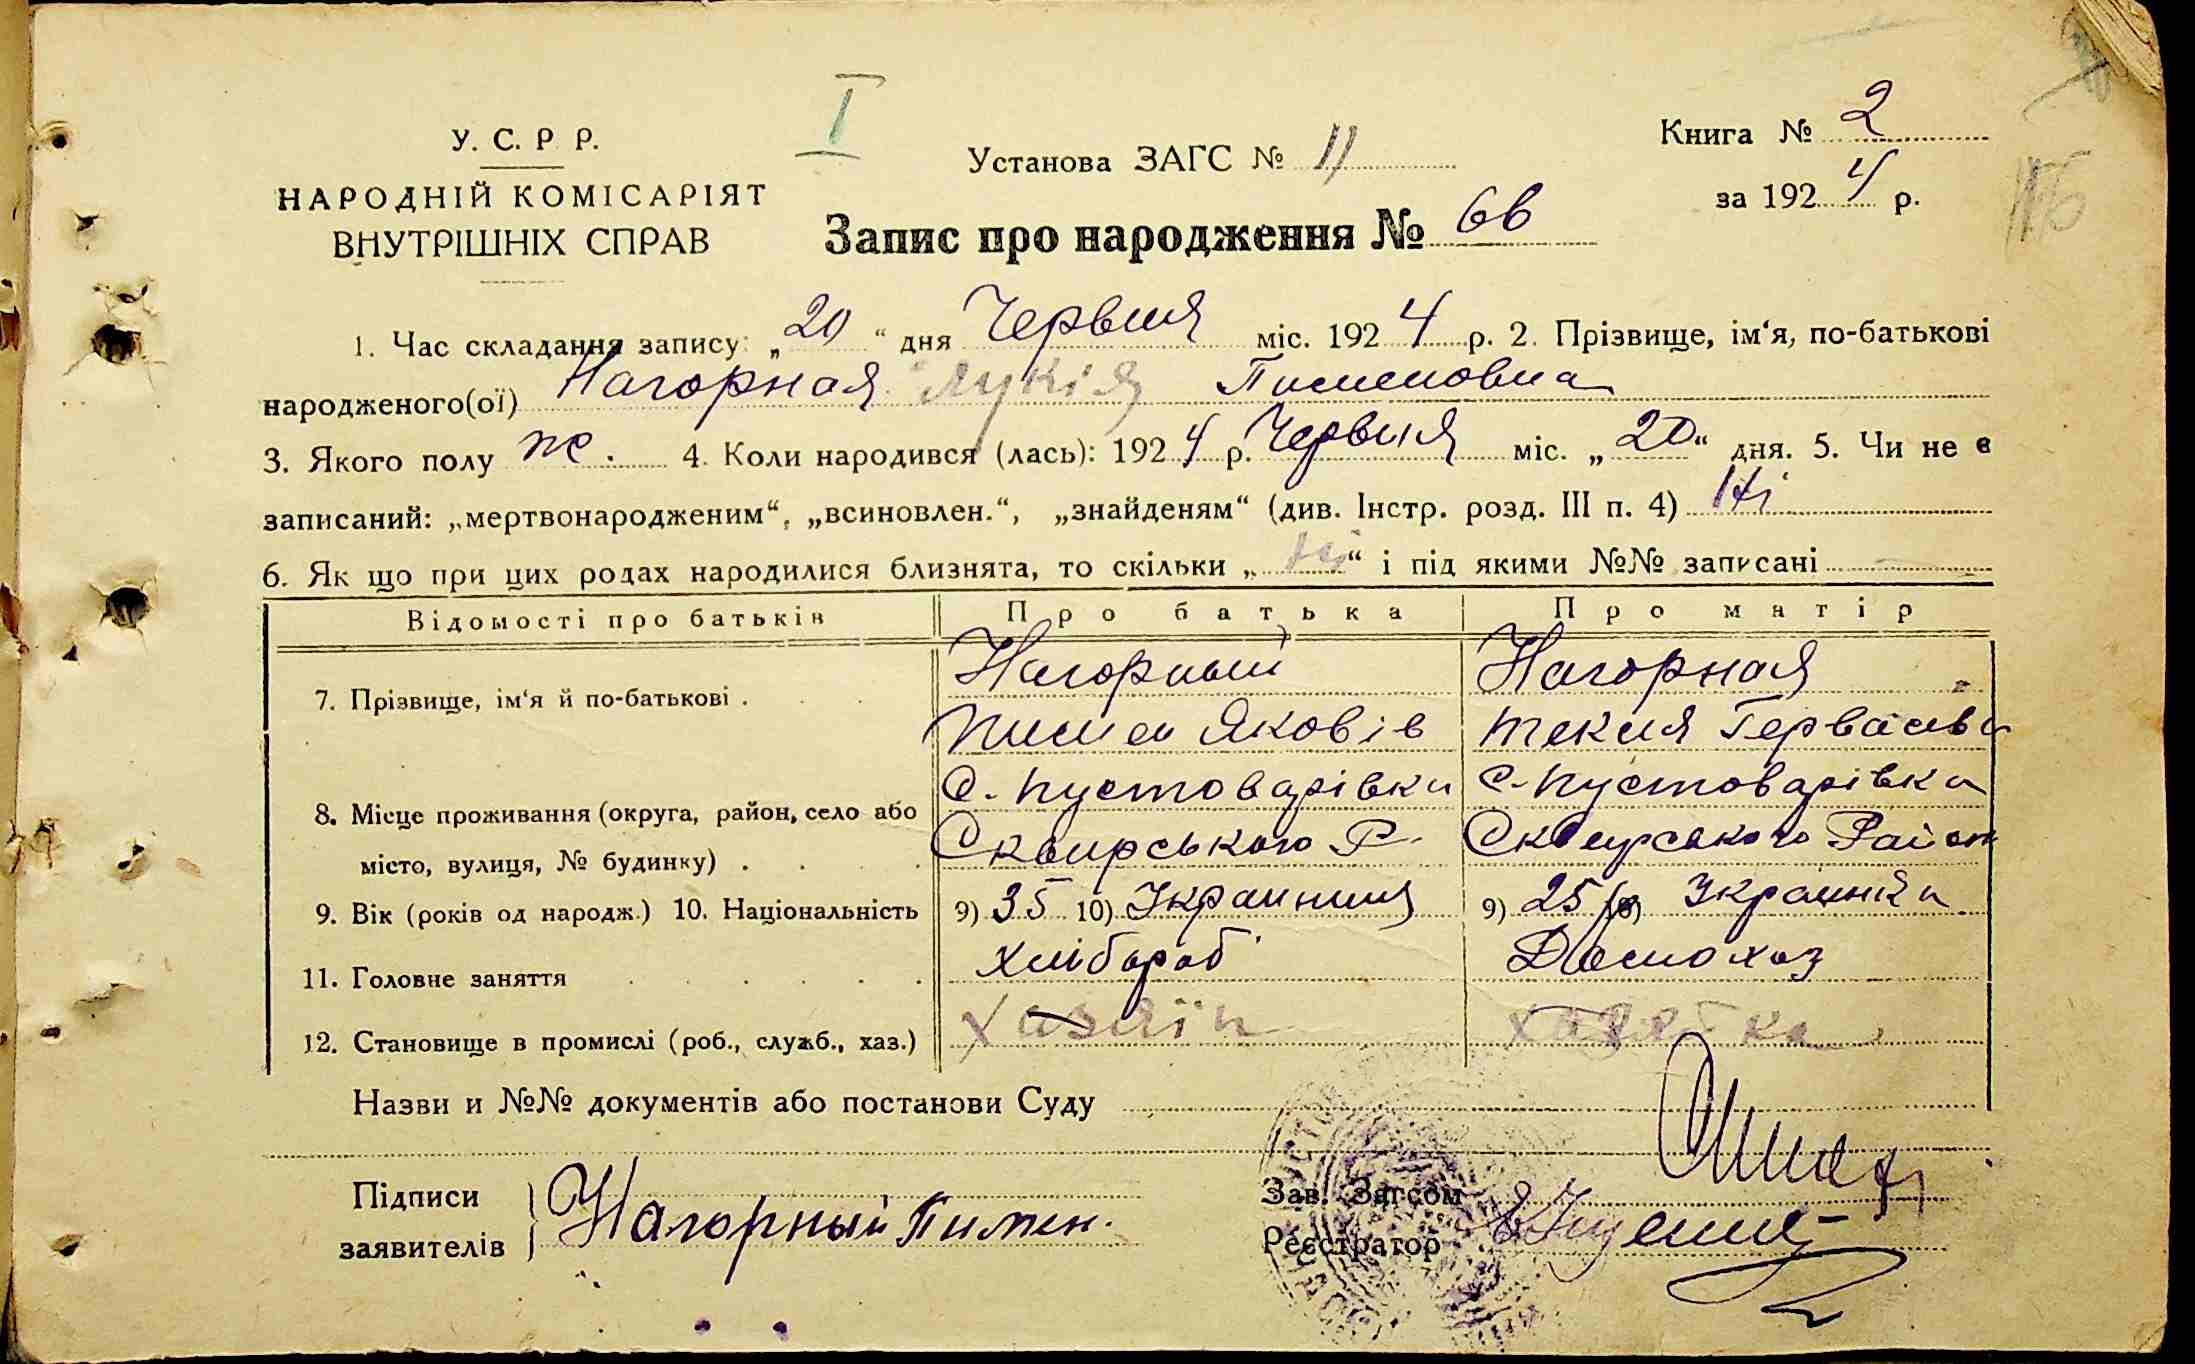 I
У. С. Р Р.
НАРОДНІЙ КОМІСАРІЯТ
ВНУТРІШНІХ СПРАВ
Установа ЗАГС № 11
Книга № 2
за 1924 р.
Запис про народження № 66
1. Час складання запису: „20“ дня Червня міс. 1924 р. 2. Прізвище, ім‘я, по-батькові
народженого(ої) Нагорная Лукія Пименовна
3. Якого полу ж. 4. Коли народився (лась): 1924 р. Червня міс. „20“ дня. 5. Чи не є
записаний: „мертвонародженим“, „всиновлен.“, „знайденям“ (див. Інстр. розд. III п. 4) Ні
6. Як що при цих родах народилися близнята, то скільки „ні“ і під якими №№ записані
Відомості про батьків Про батька Про матір
7. Прізвище, ім‘я й по-батькові . Нагорный Нагорная
Пимен Яковів Текля Герваси
8. Місце проживання (округа, район, село або с. Пустоварівка с. Пустоварівка
місто, вулиця, № будинку) . Сквирського Р. Сквирського Район
9. Вік (років од народж.) 10. Національність 9) 35 10) Украинец 9) 25 10) Украинка
11. Головне заняття Хлібороб Домохоз
12. Становище в промислі (роб., служб., хаз.) Хазяїн хазяйка
Назви и №№ документів або постанови Суду
Підписи
заявителів Нагорный Пимен.
Зав. Загсом
Реєстратор